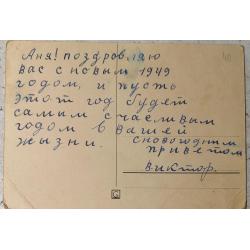 Аня! поздровляю
вас с новым 1949
годом, и пусть
этот год будет
самым счасливым
годом в вашей
жизни.
сновогодним
приветом
виктор.